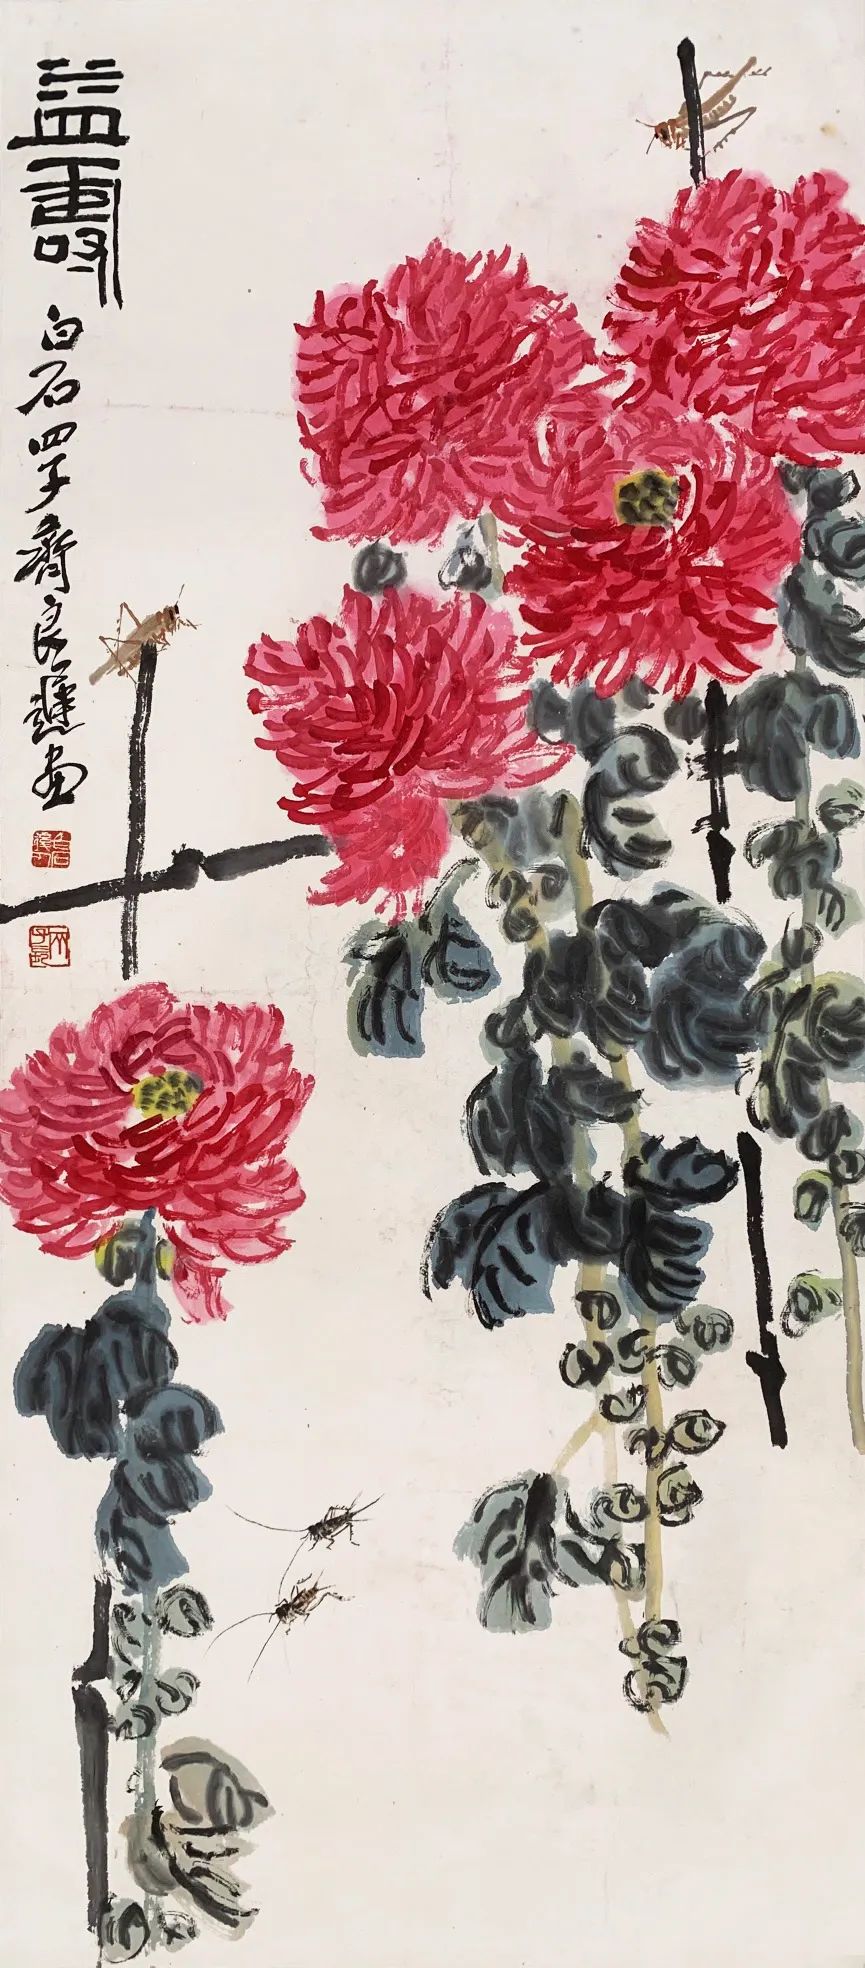 益壽
白石四子齊良遲画